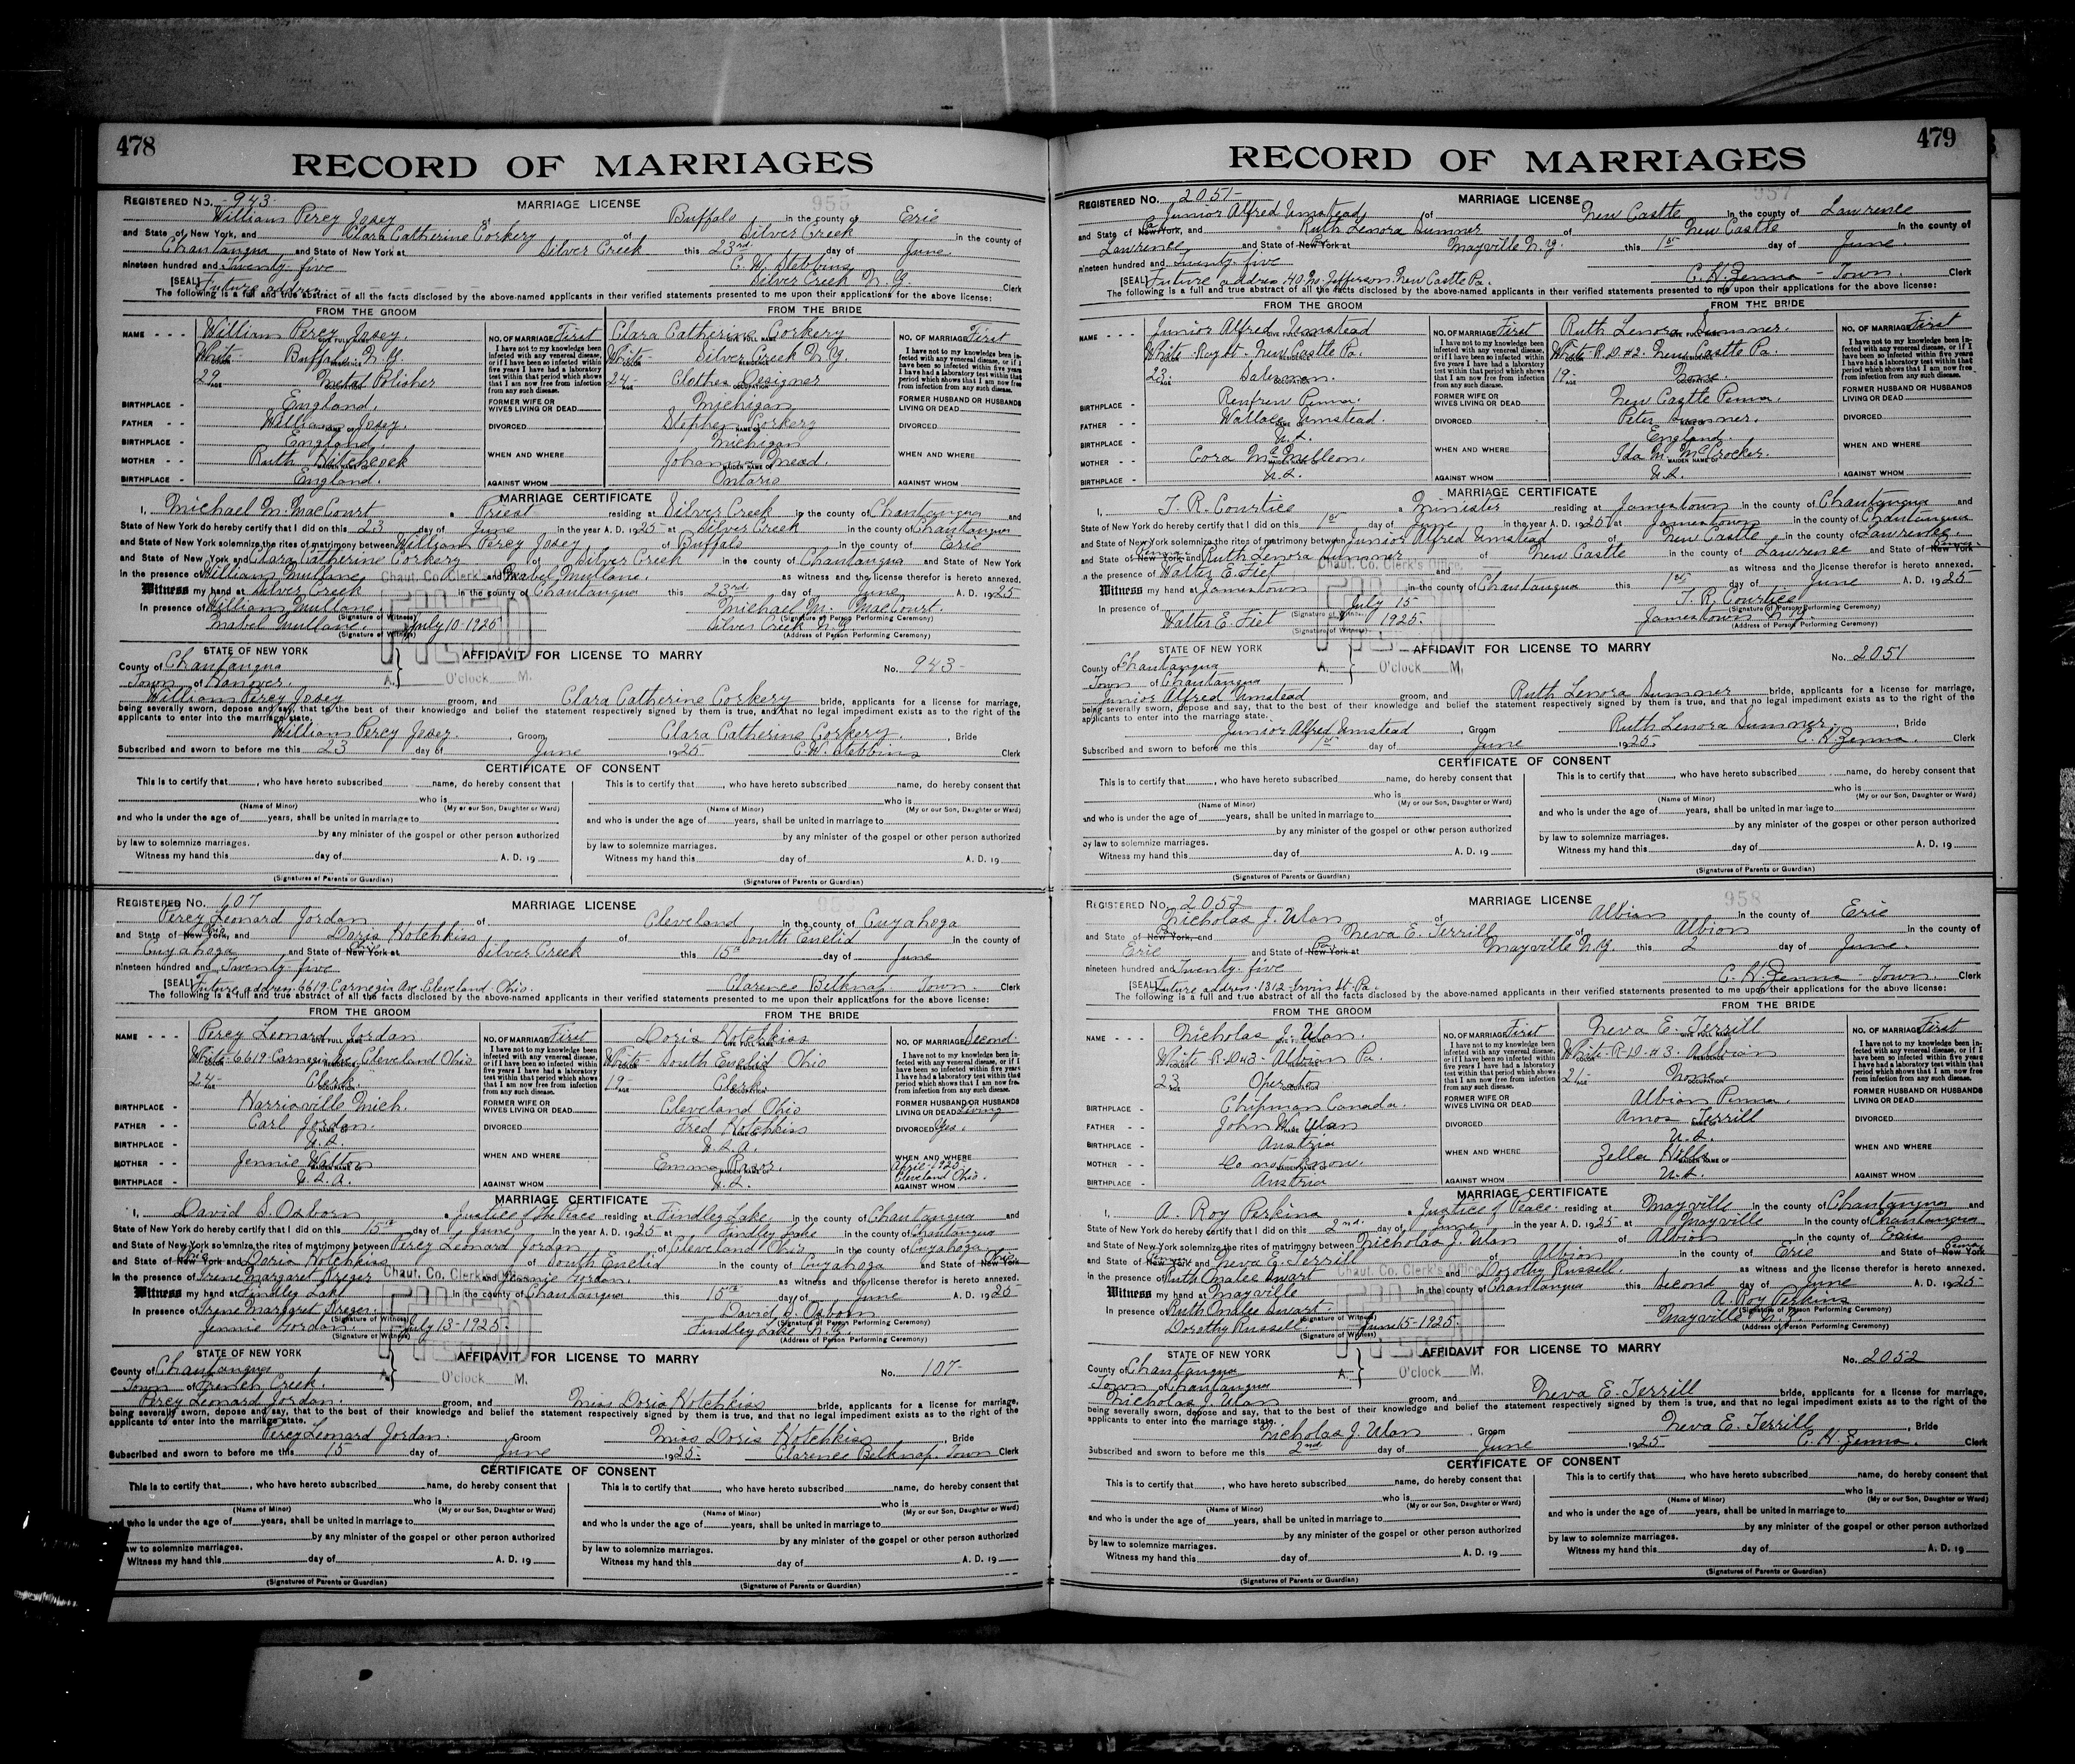 478
RECORD OF MARRIAGES
REGISTERED No. 943- MARRIAGE LICENSE 955
William Percy Josey of Buffalo in the county of Erie
and State of New York, and Clara Catherine Corkery of Silver Creek in the county of
Chautauqua and State of New York at Silver Creek this 23rd. day of June
nineteen hundred and Twenty-five C. W. Stebbins
[SEAL] Future address Silver Creek N.Y. Clerk
The following is a full and true abstract of all the facts disclosed by the above-named applicants in their verified statements presented to me upon their applications for the above license:
FROM THE GROOM FROM THE BRIDE
NAME - - - William Percy Josey. NO. OF MARRIAGE First Clara Catherine Corkery NO. OF MARRIAGE First
GIVE FULL NAME GIVE FULL NAME
White Buffalo N.Y. White Silver Creek N.Y.
COLOR RESIDENCE COLOR RESIDENCE
I have not to my knowledge been infected with any venereal disease, or if I have been so infected within five years I have had a laboratory test within that period which shows that I am now free from infection from any such disease.
29 Metal Polisher 24- Clothes Designer
AGE OCCUPATION AGE OCCUPATION
BIRTHPLACE - England. FORMER WIFE OR WIVES LIVING OR DEAD Michigan FORMER HUSBAND OR HUSBANDS LIVING OR DEAD
FATHER - - William Josey. DIVORCED Stephen Corkery DIVORCED
BIRTHPLACE - England. Michigan
MOTHER - - Ruth Hitchcock WHEN AND WHERE Johanna Mead. WHEN AND WHERE
BIRTHPLACE - England. AGAINST WHOM Ontario AGAINST WHOM
MARRIAGE CERTIFICATE
I, Michael M. MacCourt a Priest residing at Silver Creek in the county of Chautauqua and
State of New York do hereby certify that I did on this 23 day of June in the year A. D. 1925 at Silver Creek in the county of Chautauqua
and State of New York solemnize the rites of matrimony between William Percy Josey of Buffalo in the county of Erie
and State of New York and Clara Catherine Corkery of Silver Creek in the county of Chautauqua and State of New York
in the presence of William Mullane and Mabel Mullane. as witness and the license therefor is hereto annexed.
Witness my hand at Silver Creek in the county of Chautauqua this 23rd. day of June A. D. 1925
In presence of William Mullane. Michael M. MacCourt.
(Signature of Witness) (Signature of Person Performing Ceremony)
Mabel Mullane. July 10-1925 Silver Creek N.Y.
(Signature of Witness) (Address of Person Performing Ceremony)
Chaut. Co. Clerk's Office
FILED
A. O'clock M.
STATE OF NEW YORK AFFIDAVIT FOR LICENSE TO MARRY
County of Chautauqua No. 943-
Town of Hanover.
William Percy Josey groom, and Clara Catherine Corkery bride, applicants for a license for marriage,
being severally sworn, depose and say, that to the best of their knowledge and belief the statement respectively signed by them is true, and that no legal impediment exists as to the right of the
applicants to enter into the marriage state.
William Percy Josey. Groom Clara Catherine Corkery. Bride
Subscribed and sworn to before me this 23 day of June 1925 C. W. Stebbins Clerk
CERTIFICATE OF CONSENT
This is to certify that, who have hereto subscribed name, do hereby consent that This is to certify that, who have hereto subscribed name, do hereby consent that
who is who is
(Name of Minor) (My or our Son, Daughter or Ward) (Name of Minor) (My or our Son, Daughter or Ward)
and who is under the age of years, shall be united in marriage to and who is under the age of years, shall be united in marriage to
by any minister of the gospel or other person authorized by any minister of the gospel or other person authorized
by law to solemnize marriages. by law to solemnize marriages.
Witness my hand this day of A. D. 19 Witness my hand this day of A. D. 19
(Signatures of Parents or Guardian) (Signatures of Parents or Guardian)
REGISTERED No. 107 MARRIAGE LICENSE
Percy Leonard Jordan of Cleveland in the county of Cuyahoga
and State of New York, Ohio and Doris Hotchkiss of South Euclid in the county of
Cuyahoga and State of New York Ohio at Silver Creek this 15th day of June
nineteen hundred and Twenty-five
[SEAL] Future address 6619-Carnegie Ave. Cleveland-Ohio. Clarence Belknap Town- Clerk
The following is a full and true abstract of all the facts disclosed by the above-named applicants in their verified statements presented to me upon their applications for the above license:
FROM THE GROOM FROM THE BRIDE
NAME - - - Percy Leonard Jordan NO. OF MARRIAGE First Doris Hotchkiss NO. OF MARRIAGE Second
GIVE FULL NAME GIVE FULL NAME
White-6619-Carnegie Ave. Cleveland Ohio White-South Euclid Ohio
COLOR RESIDENCE COLOR RESIDENCE
I have not to my knowledge been infected with any venereal disease, or if I have been so infected within five years I have had a laboratory test within that period which shows that I am now free from infection from any such disease.
24- Clerk. 19- Clerk.
AGE OCCUPATION AGE OCCUPATION
BIRTHPLACE - Harrisville Mich. FORMER WIFE OR WIVES LIVING OR DEAD Cleveland Ohio FORMER HUSBAND OR HUSBANDS LIVING OR DEAD Living
FATHER - - Carl Jordan. DIVORCED Fred Hotchkiss DIVORCED Yes.
BIRTHPLACE - U.S. U.S.A.
MOTHER - - Jennie Walton WHEN AND WHERE Emma WHEN AND WHERE April-1925.
BIRTHPLACE - U.S.A. AGAINST WHOM U.S. Cleveland Ohio. AGAINST WHOM
MARRIAGE CERTIFICATE
I, David S. Osborn a Justice of The Peace residing at Findley Lake in the county of Chautauqua and
State of New York do hereby certify that I did on this 15th day of June in the year A. D. 1925 at Findley Lake in the county of Chautauqua
and State of New York solemnize the rites of matrimony between Percy Leonard Jordan of Cleveland Ohio in the county of Cuyahoga
and State of New York Ohio and Doris Hotchkiss of South Euclid in the county of Cuyahoga and State of New York Ohio
in the presence of Irene Margaret Kreger and Jennie Jordan. as witness and the license therefor is hereto annexed.
Witness my hand at Findley Lake in the county of Chautauqua this 15th day of June A. D. 1925-
In presence of Irene Margaret Kreger. David S. Osborn
(Signature of Witness) (Signature of Person Performing Ceremony)
Jennie Jordan. July 13-1925. Findley Lake N.Y.
(Signature of Witness) (Address of Person Performing Ceremony)
Chaut. Co. Clerk's Office
FILED
A. O'clock M.
STATE OF NEW YORK AFFIDAVIT FOR LICENSE TO MARRY
County of Chautauqua No. 107-
Town of French Creek.
Percy Leonard Jordan. groom, and Miss Doris Hotchkiss bride, applicants for a license for marriage,
being severally sworn, depose and say, that to the best of their knowledge and belief the statement respectively signed by them is true, and that no legal impediment exists as to the right of the
applicants to enter into the marriage state.
Percy Leonard Jordan. Groom Miss Doris Hotchkiss, Bride
Subscribed and sworn to before me this 15 day of June 1925- Clarence Belknap, Town Clerk
CERTIFICATE OF CONSENT
This is to certify that, who have hereto subscribed name, do hereby consent that This is to certify that, who have hereto subscribed name, do hereby consent that
who is who is
(Name of Minor) (My or our Son, Daughter or Ward) (Name of Minor) (My or our Son, Daughter or Ward)
and who is under the age of years, shall be united in marriage to and who is under the age of years, shall be united in marriage to
by any minister of the gospel or other person authorized by any minister of the gospel or other person authorized
law to solemnize marriages. by law to solemnize marriages.
Witness my hand this day of A. D. 19 Witness my hand this day of A. D. 19
(Signatures of Parents or Guardian) (Signatures of Parents or Guardian)
479
RECORD OF MARRIAGES
REGISTERED No. 2051- MARRIAGE LICENSE 957
Junior Alfred Umstead of New Castle in the county of Lawrence
and State of New York, Pa and Ruth Lenora Sumner of New Castle in the county of
Lawrence and State of New York Pa at Mayville N.Y. this 1st day of June.
nineteen hundred and twenty-five
[SEAL] Future address 40 No Jefferson New Castle Pa. C. H. Zenna - Town. Clerk
The following is a full and true abstract of all the facts disclosed by the above-named applicants in their verified statements presented to me upon their applications for the above license:
FROM THE GROOM FROM THE BRIDE
NAME - - - Junior Alfred Umstead NO. OF MARRIAGE First Ruth Lenora Sumner. NO. OF MARRIAGE First
GIVE FULL NAME GIVE FULL NAME
White New Castle Pa. White-R.D.#2. New Castle Pa.
COLOR RESIDENCE COLOR RESIDENCE
I have not to my knowledge been infected with any venereal disease, or if I have been so infected within five years I have had a laboratory test within that period which shows that I am now free from infection from any such disease.
23- Salesman. 19- None.
AGE OCCUPATION AGE OCCUPATION
BIRTHPLACE - Renfrew Penna. FORMER WIFE OR WIVES LIVING OR DEAD New Castle Penna. FORMER HUSBAND OR HUSBANDS LIVING OR DEAD
FATHER - - Wallace Umstead. DIVORCED Peter Sumner. DIVORCED
BIRTHPLACE - U.S. England.
MOTHER - - Cora McMelleon. WHEN AND WHERE Ida M. McCrocker. WHEN AND WHERE
BIRTHPLACE - U.S. AGAINST WHOM U.S. AGAINST WHOM
MARRIAGE CERTIFICATE
I, T. R. Courtice a Minister residing at Jamestown in the county of Chautauqua and
State of New York do hereby certify that I did on this 1st day of June in the year A. D. 1925 at Jamestown in the county of Chautauqua
and State of New York solemnize the rites of matrimony between Junior Alfred Umstead of New Castle in the county of Lawrence
and State of New York Penna. and Ruth Lenora Sumner of New Castle in the county of Lawrence and State of New York Penna.
in the presence of Walter E. Fiet and as witness and the license therefor is hereto annexed.
Witness my hand at Jamestown in the county of Chautauqua this 1st day of June A. D. 1925-
In presence of T. R. Courtice
(Signature of Witness) July 15 (Signature of Person Performing Ceremony)
Walter E. Fiet 1925. Jamestown N.Y.
(Signature of Witness) (Address of Person Performing Ceremony)
Chaut. Co. Clerk's Office.
FILED
A. O'clock M.
STATE OF NEW YORK AFFIDAVIT FOR LICENSE TO MARRY
County of Chautauqua No. 2051
Town of Chautauqua
Junior Alfred Umstead groom, and Ruth Lenora Sumner bride, applicants for a license for marriage,
being severally sworn, depose and say, that to the best of their knowledge and belief the statement respectively signed by them is true, and that no legal impediment exists as to the right of the
applicants to enter into the marriage state.
Junior Alfred Umstead Groom Ruth Lenora Sumner. Bride
Subscribed and sworn to before me this 1st day of June 1925. C. H. Zenna. Clerk
CERTIFICATE OF CONSENT
This is to certify that, who have hereto subscribed name, do hereby consent that This is to certify that, who have hereto subscribed name, do hereby consent that
who is who is
(Name of Minor) (My or our Son, Daughter or Ward) (Name of Minor) (My or our Son, Daughter or Ward)
and who is under the age of years, shall be united in marriage to and who is under the age of years, shall be united in marriage to
by any minister of the gospel or other person authorized by any minister of the gospel or other person authorized
by law to solemnize marriages. by law to solemnize marriages.
Witness my hand this day of A. D. 19 Witness my hand this day of A. D. 19
(Signatures of Parents or Guardian) (Signatures of Parents or Guardian)
REGISTERED No. 2052 MARRIAGE LICENSE 958
Nicholas J. Ulan of Albion in the county of Erie
and State of New York, Pa and Neva E. Terrill of Albion in the county of
Erie and State of New York Pa at Mayville N.Y. this 2 day of June.
nineteen hundred and Twenty-five
[SEAL] Future address-1312-Irwin St-Pa. C. H. Zenna - Town. Clerk
The following is a full and true abstract of all the facts disclosed by the above-named applicants in their verified statements presented to me upon their applications for the above license:
FROM THE GROOM FROM THE BRIDE
NAME - - - Nicholas J. Ulan. NO. OF MARRIAGE First Neva E. Terrill NO. OF MARRIAGE First
GIVE FULL NAME GIVE FULL NAME
White-R-D#3-Albion Pa. White-R-D-#3-Albion
COLOR RESIDENCE COLOR RESIDENCE
I have not to my knowledge been infected with any venereal disease, or if I have been so infected within five years I have had a laboratory test within that period which shows that I am now free from infection from any such disease.
23 Operator 21- None.
AGE OCCUPATION AGE OCCUPATION
BIRTHPLACE - Chipman Canada. FORMER WIFE OR WIVES LIVING OR DEAD Albion Penna. FORMER HUSBAND OR HUSBANDS LIVING OR DEAD
FATHER - - John W. Ulan DIVORCED Amos Terrill DIVORCED
BIRTHPLACE - Austria U.S.
MOTHER - - Do not know. WHEN AND WHERE Zella Hills WHEN AND WHERE
BIRTHPLACE - Austria AGAINST WHOM U.S. AGAINST WHOM
MARRIAGE CERTIFICATE
I, A. Roy Perkins a Justice of Peace. residing at Mayville in the county of Chautauqua and
State of New York do hereby certify that I did on this 2nd. day of June in the year A. D. 1925 at Mayville in the county of Chautauqua
and State of New York solemnize the rites of matrimony between Nicholas J. Ulan of Albion in the county of Erie
and State of New York Penna and Neva E. Terrill of Albion in the county of Erie and State of New York Penna
in the presence of Ruth Onalee Swart and Dorothy Russell. as witness and the license therefor is hereto annexed.
Witness my hand at Mayville in the county of Chautauqua this Second day of June A. D. 1925-
In presence of Ruth Onalee Swart- A. Roy Perkins
(Signature of Witness) (Signature of Person Performing Ceremony)
Dorothy Russell. June 15-1925. Mayville N.Y.
(Signature of Witness) (Address of Person Performing Ceremony)
Chaut. Co. Clerk's Office
FILED
A. O'clock M.
STATE OF NEW YORK AFFIDAVIT FOR LICENSE TO MARRY
County of Chautauqua No. 2052
Town of Chautauqua
Nicholas J. Ulan groom, and Neva E. Terrill bride, applicants for a license for marriage,
being severally sworn, depose and say, that to the best of their knowledge and belief the statement respectively signed by them is true, and that no legal impediment exists as to the right of the
applicants to enter into the marriage state.
Nicholas J. Ulan Groom Neva E. Terrill, Bride
Subscribed and sworn to before me this 2nd day of June 1925 C. H. Zenna. Clerk
CERTIFICATE OF CONSENT
This is to certify that, who have hereto subscribed name, do hereby consent that This is to certify that, who have hereto subscribed name, do hereby consent that
who is who is
(Name of Minor) (My or our Son, Daughter or Ward) (Name of Minor) (My or our Son, Daughter or Ward)
and who is under the age of years, shall be united in marriage to and who is under the age of years, shall be united in marriage to
by any minister of the gospel or other person authorized by any minister of the gospel or other person authorized
by law to solemnize marriages. by law to solemnize marriages.
Witness my hand this day of A. D. 19 Witness my hand this day of A. D. 19
(Signatures of Parents or Guardian) (Signatures of Parents or Guardian)